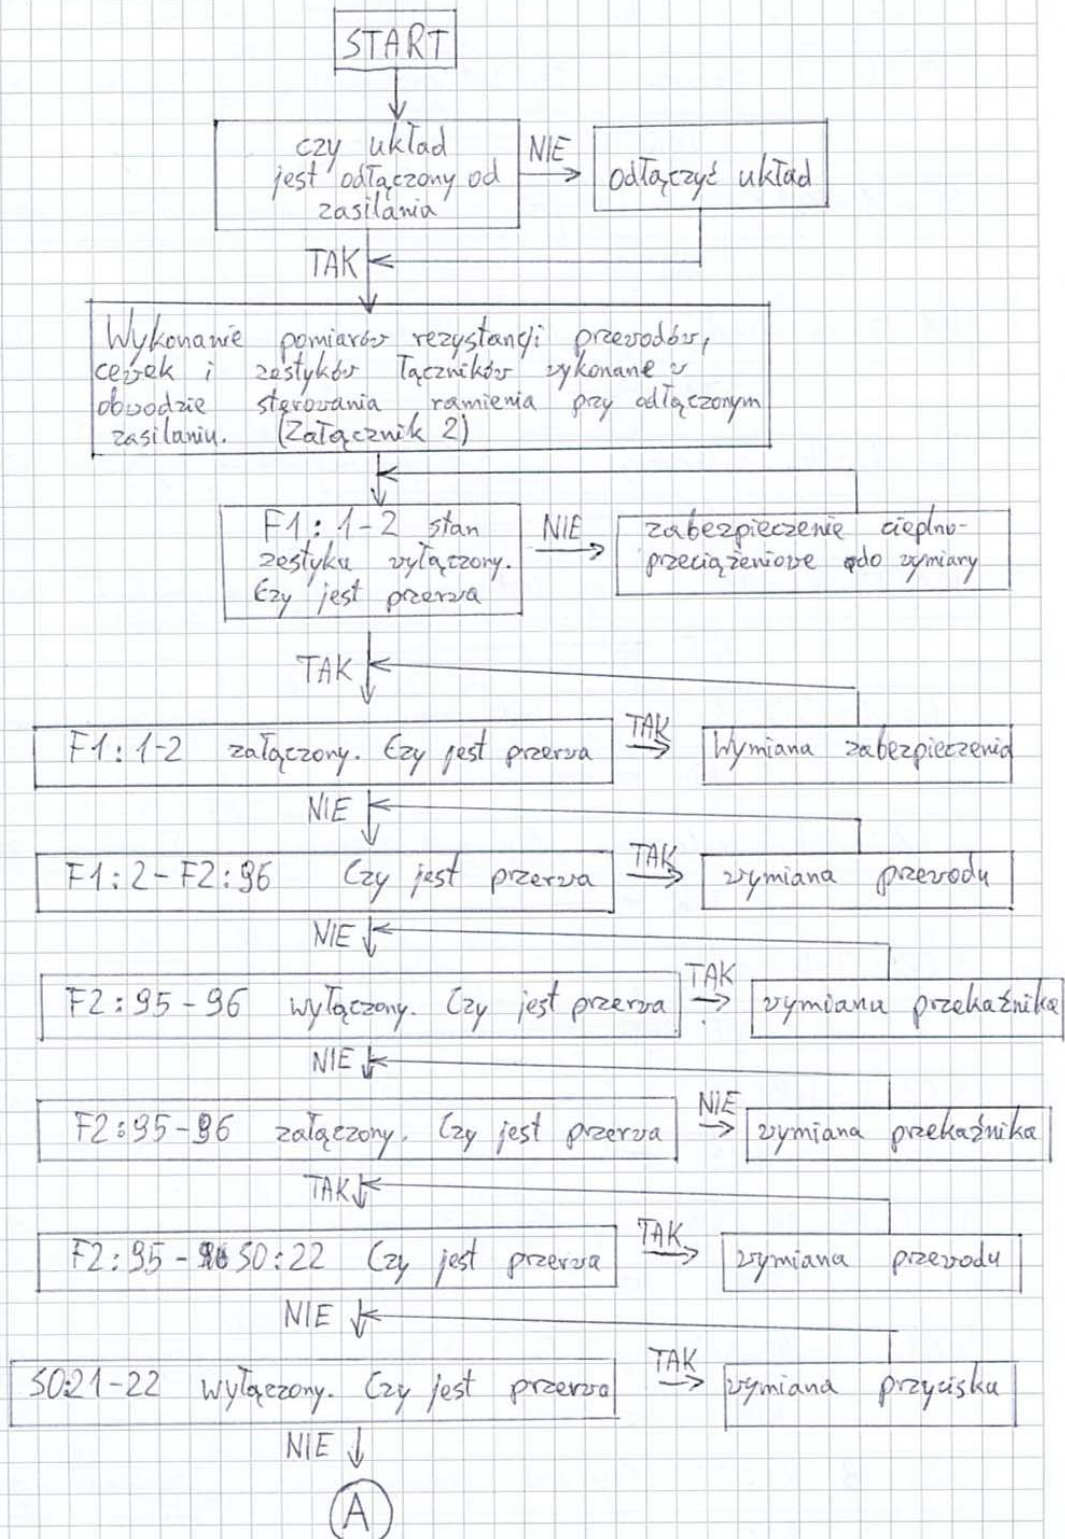 START
czy układ
jest odłączony od
zasilania
NIE
odłączyć układ
TAK
Wykonanie pomiarów rezystancji przewodów,
cewek i zestyków łączników wykonane w
obwodzie sterowania ramienia przy odłączonym
zasilaniu. (Załącznik 2)
F1: 1-2 stan
zestyku wyłączony.
Czy jest przerwa
NIE
zabezpieczenie cieplno-
przeciążeniowe do wymiany
TAK
F1: 1-2 załączony. Czy jest przerwa
TAK
Wymiana zabezpieczenia
NIE
F1:2-F2:96 Czy jest przerwa
TAK
wymiana przewodu
NIE
F2:95-96 wyłączony. Czy jest przerwa
TAK
wymiana przekaźnika
NIE
F2:95-96 załączony. Czy jest przerwa
NIE
wymiana przekaźnika
TAK
F2:95 - S0:22 Czy jest przerwa
TAK
wymiana przewodu
NIE
S0:21-22 wyłączony. Czy jest przerwa
TAK
wymiana przycisku
NIE
A